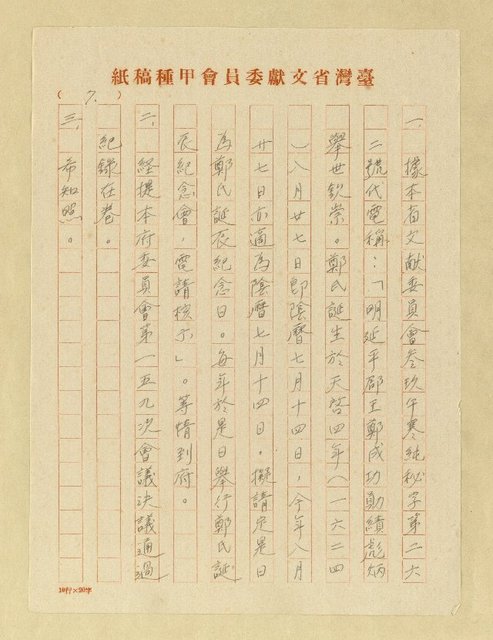 臺灣省文獻委員會甲種稿紙
(7.)
一、據本省文献委員會叁玖午寒純秘字第二六
二號代電稱：「明延平郡王鄭成功勛績彪炳
舉世欽崇。鄭氏誕生於天啓四年(一六二四
)八月廿七日即陰曆七月十四日，今年八月
廿七日亦適為陰曆七月十四日。擬請定是日
為鄭氏誕辰紀念日。每年於是日舉行鄭氏誕
辰紀念會，電請核示」。等情到府。
二、經提本府委員會第一五九次會議決議通過
紀錄在卷。
三、希知照。
10行×20字